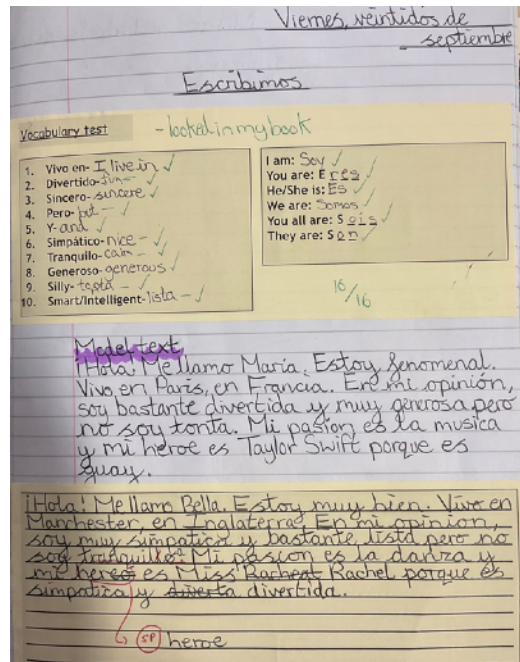 Viernes, veintidos de
septiembre
Escribimos
Vocabulary test
- looked in my book
1. Vivo en- I live in
2. Divertido- fun
3. Sincero- sincere
4. Pero- but
5. Y- and
6. Simpático- nice
7. Tranquilo- calm
8. Generoso- generous
9. Silly- tonta
10. Smart/Intelligent- lista
I am: Soy
You are: Eres
He/She is: Es
We are: Somos
You all are: Sois
They are: Son
16/16
Model text
¡Hola! Me llamo María. Estoy fenomenal.
Vivo en París, en Francia. En mi opinión,
soy bastante divertida y muy generosa pero
no soy tonta. Mi pasíon es la musica
y mi heroe es Taylor Swift porque es
guay.
¡Hola! Me llamo Bella. Estoy muy bien. Vivo en
Manchester, en Inglaterra. En mi opinion,
soy muy simpatica y bastante lista pero no
soy tranquillo. Mi pascion es la danza y
mi hereo es Miss Rachel porque es
simpatica y diverta divertida.
sp heroe